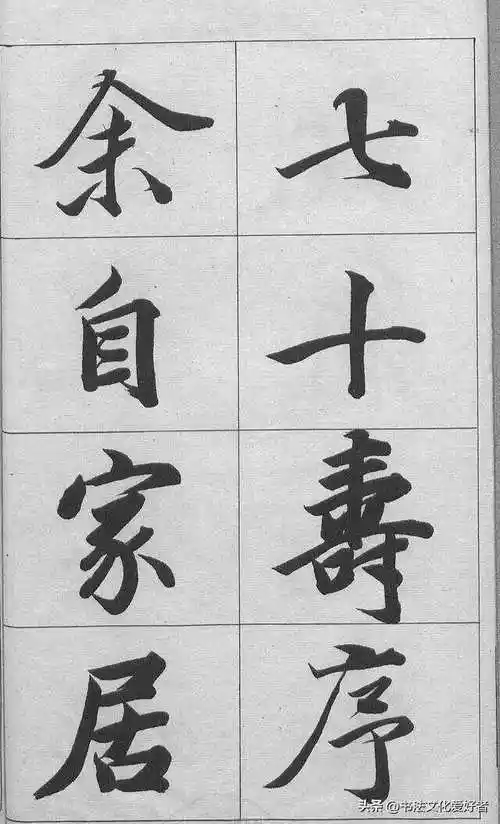 七十壽序
余自家居
头条 @书法文化爱好者